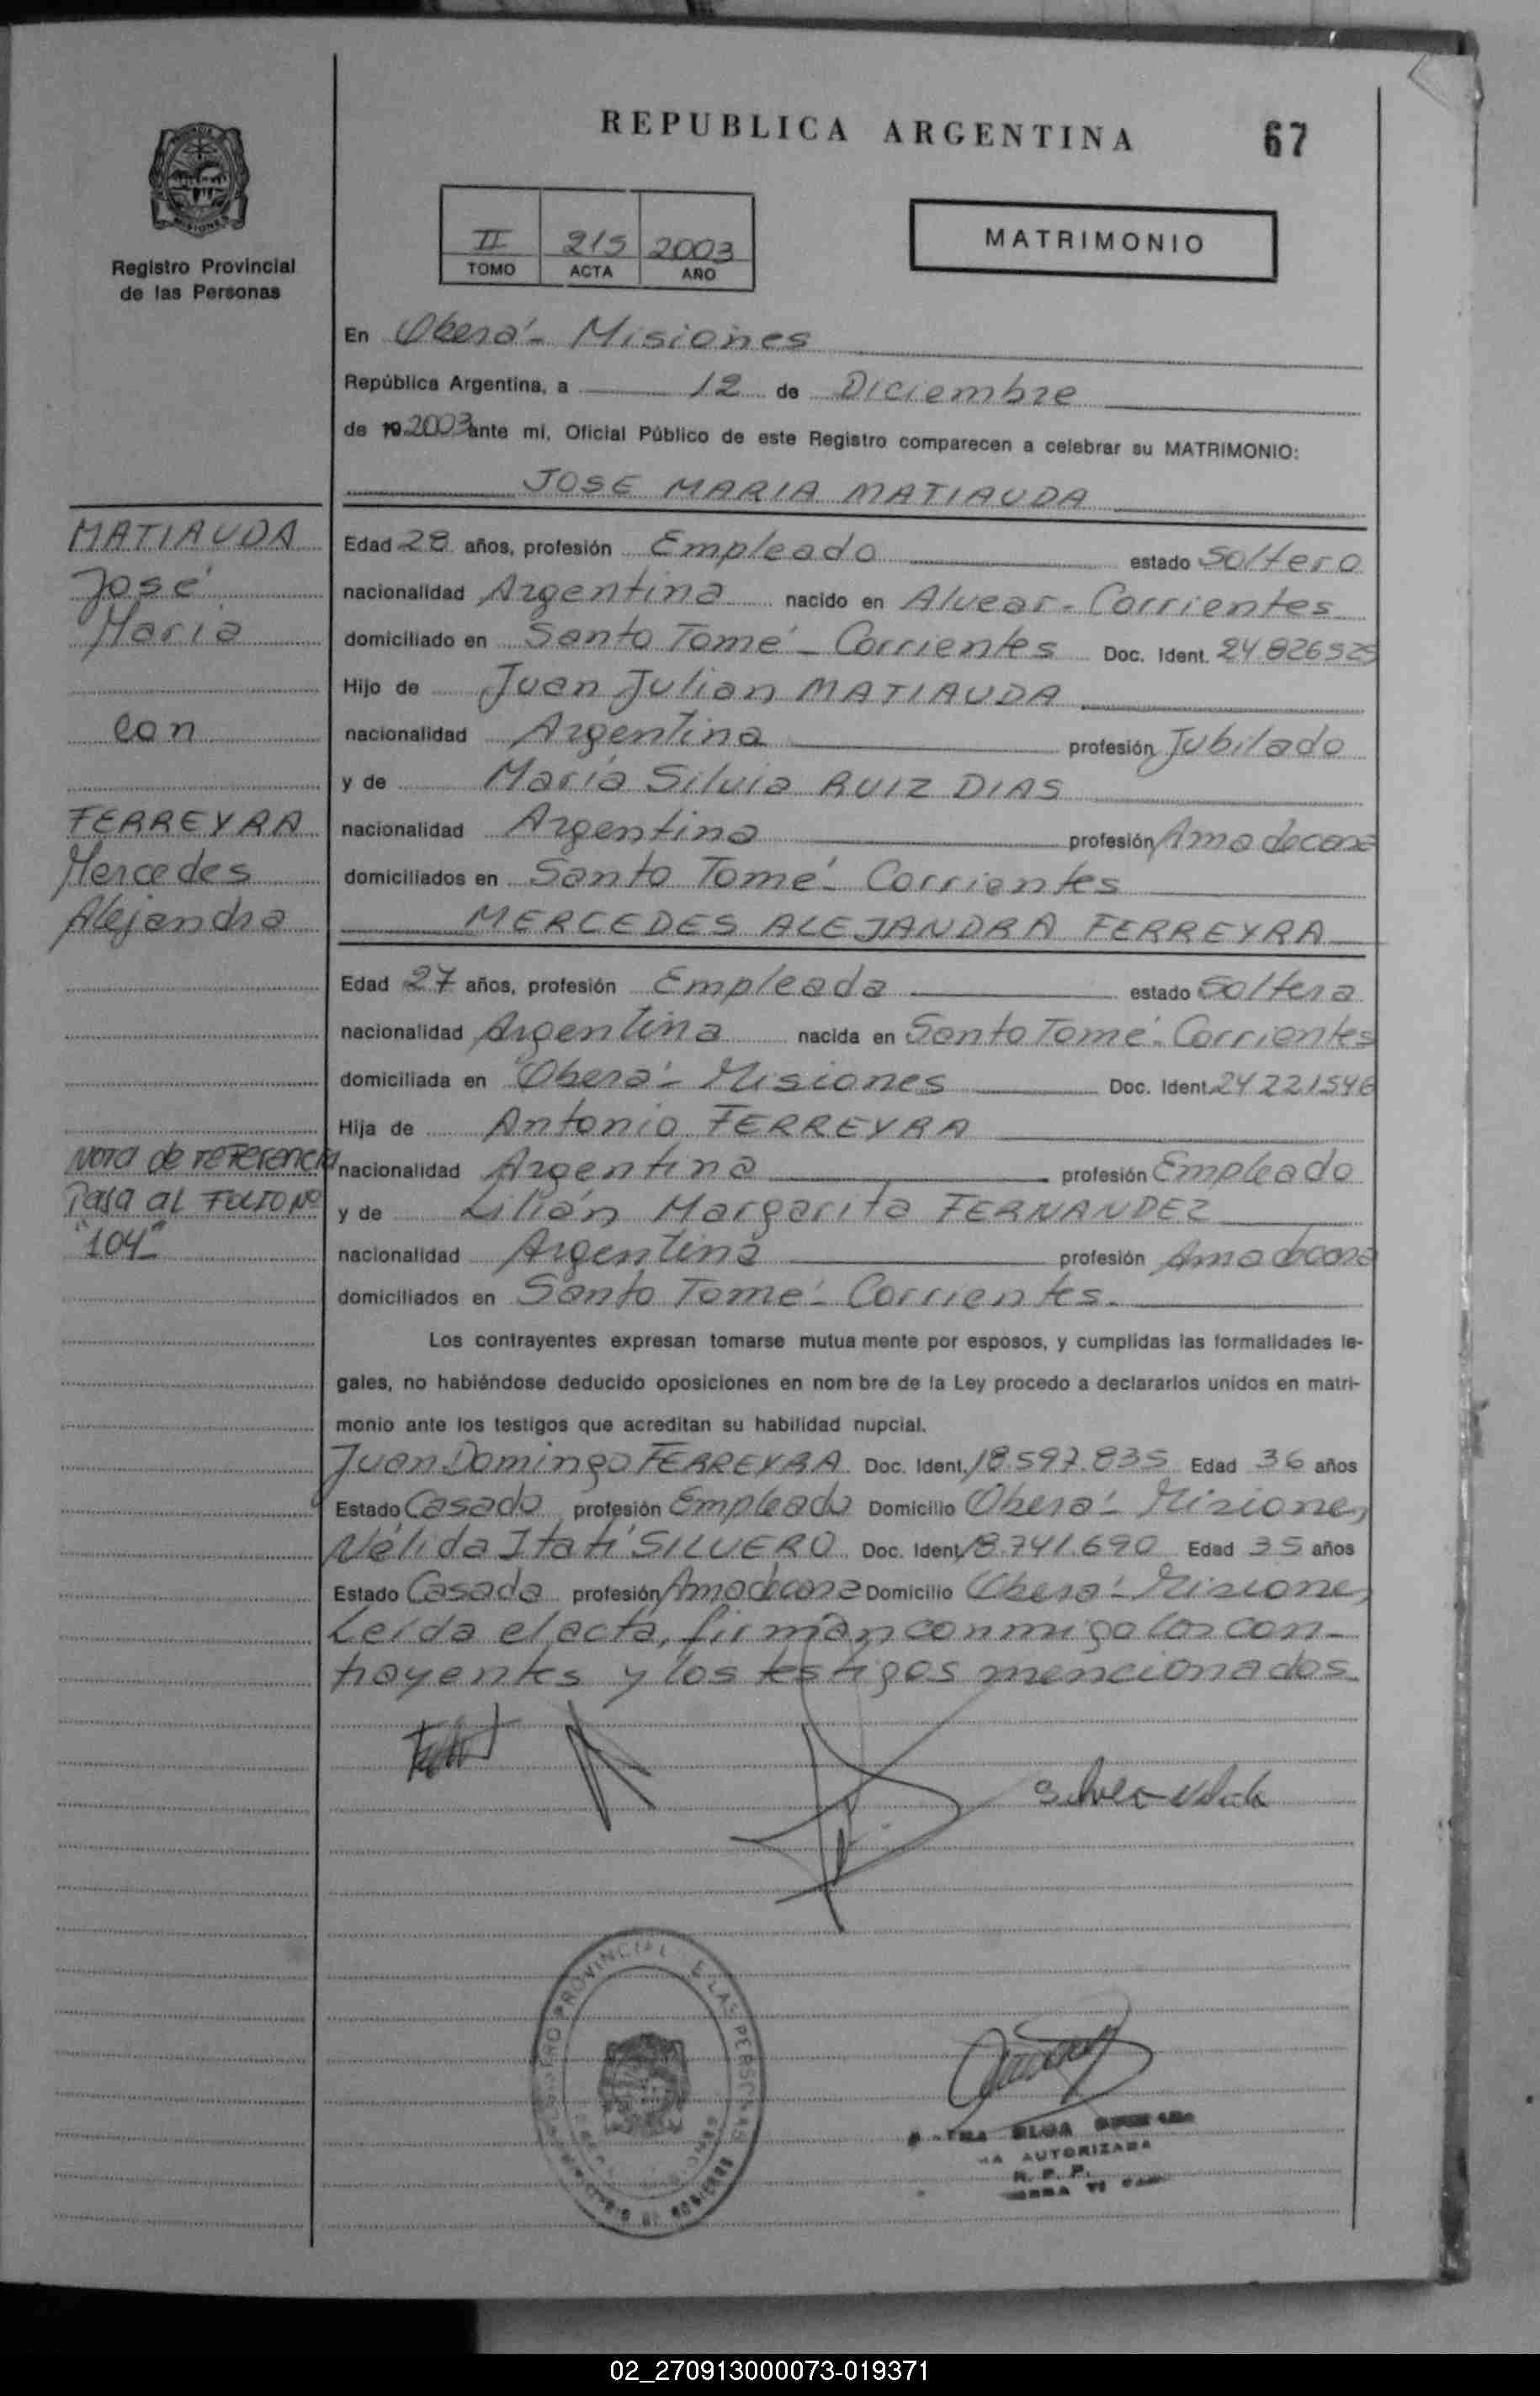 REPUBLICA ARGENTINA
67
MISIONES
Registro Provincial
de las Personas
II 215 2003
TOMO ACTA AÑO
MATRIMONIO
En Oberá - Misiones
República Argentina, a 12 de Diciembre
de 19 2003 ante mi, Oficial Público de este Registro comparecen a celebrar su MATRIMONIO:
JOSE MARIA MATIAUDA
MATIAUDA
José
María
con
FERREYRA
Mercedes
Alejandra
Edad 28 años, profesión Empleado estado Soltero
nacionalidad Argentina nacido en Alvear - Corrientes
domiciliado en Santo Tomé - Corrientes Doc. Ident. 24.826.525
Hijo de Juan Julian MATIAUDA
nacionalidad Argentina profesión Jubilado
y de María Silvia RUIZ DIAS
nacionalidad Argentina profesión Ama de casa
domiciliados en Santo Tomé - Corrientes
MERCEDES ALEJANDRA FERREYRA
Edad 27 años, profesión Empleada estado Soltera
nacionalidad Argentina nacida en Santo Tomé - Corrientes
domiciliada en Oberá - Misiones Doc. Ident. 24.221.546
Hija de Antonio FERREYRA
nacionalidad Argentina profesión Empleado
y de Lilián Margarita FERNANDEZ
nacionalidad Argentina profesión Ama de casa
domiciliados en Santo Tomé - Corrientes.
Nota de referencia
Pasa al FOLIO Nº
"104"
Los contrayentes expresan tomarse mutua mente por esposos, y cumplidas las formalidades le-
gales, no habiéndose deducido oposiciones en nom bre de la Ley procedo a declararlos unidos en matri-
monio ante los testigos que acreditan su habilidad nupcial.
Juan Domingo FERREYRA Doc. Ident. 18.597.835 Edad 36 años
Estado Casado profesión Empleado Domicilio Oberá - Misiones
Nélida Itatí SILVERO Doc. Ident. 18.741.690 Edad 35 años
Estado Casada profesión Ama de casa Domicilio Oberá - Misiones
Leída el acta, firman conmigo los con-
trayentes y los testigos mencionados.
PROVINCIAL LAS PERSONAS
AUTORIZADA
R. P. P.
02_270913000073-019371